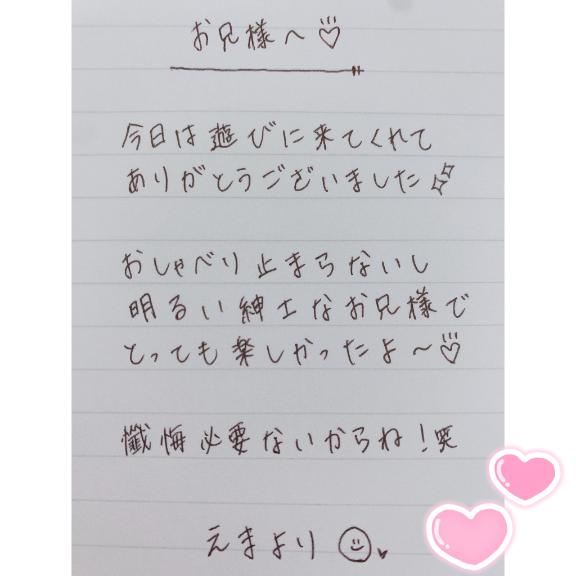 お兄様へ♡
今日は遊びに来てくれて
ありがとうございました✨
おしゃべり止まらないし
明るい紳士なお兄様で
とっても楽しかったよ〜♡
懺悔必要ないからね！笑
えまより☺♥